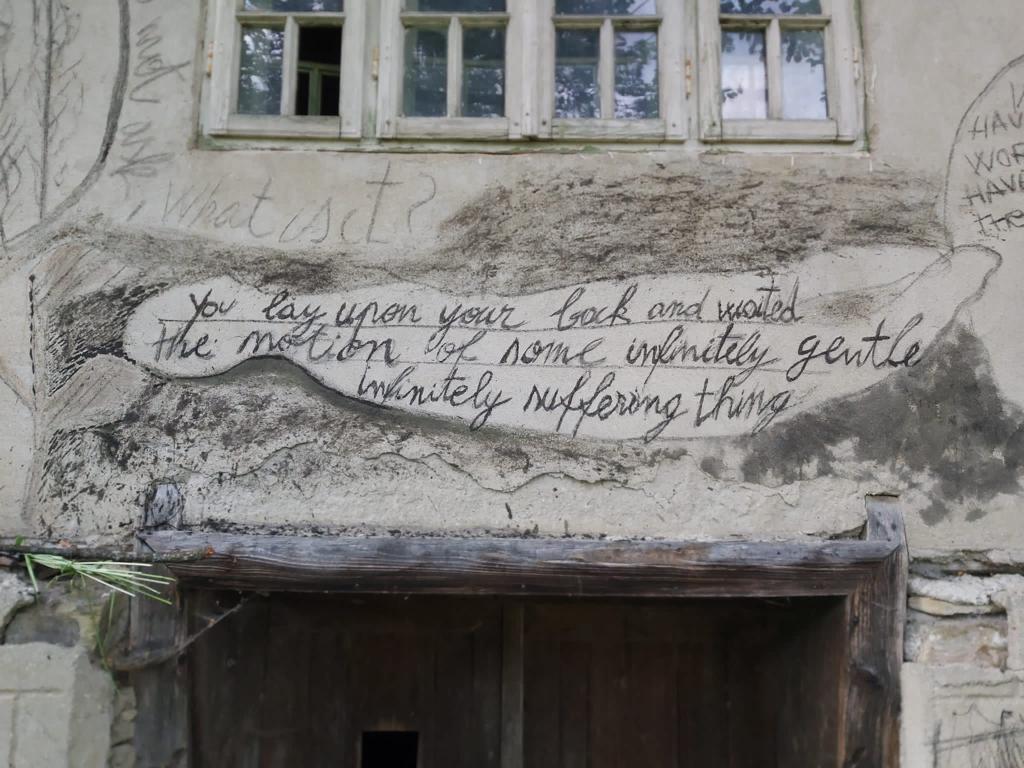 do not ask
, What is it?
HAV
WOR
HAVE
the
You lay upon your back and waited
the motion of some infinitely gentle
infinitely suffering thing